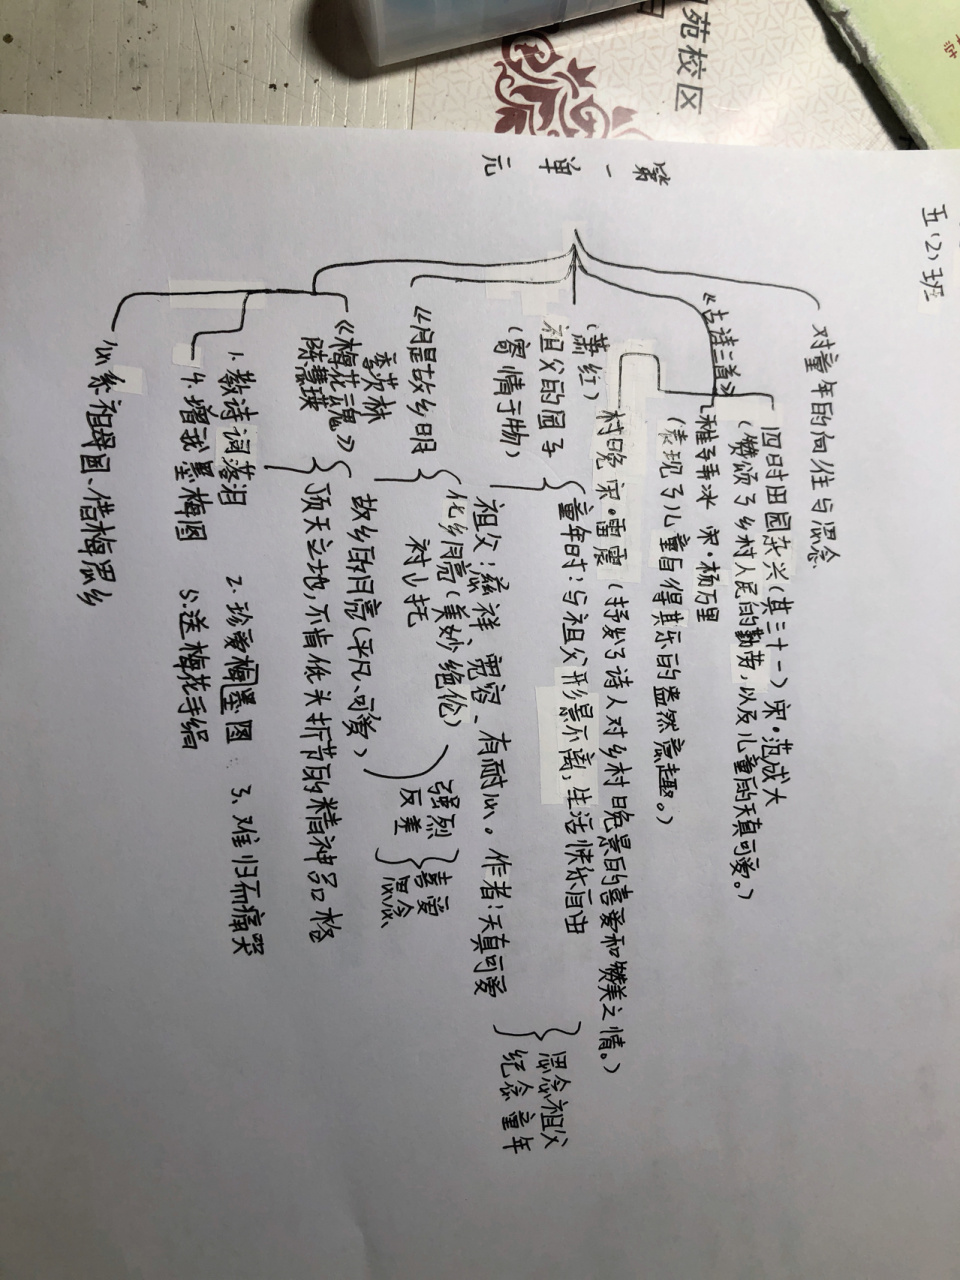 苑校区
五(2)班
第一单元
对童年的向往与思念
《古诗三首》
四时田园杂兴(其三十一)宋·范成大
(赞颂了乡村人民的勤劳,以及儿童的天真可爱。)
稚子弄冰 宋·杨万里
(表现了儿童自得其乐的盎然意趣。)
村晚 宋·雷震(抒发了诗人对乡村晚景的喜爱和赞美之情。)
(萧红)
祖父的园子
(寄情于物)
童年时:与祖父形影不离,生活快乐自由
祖父:慈祥 宽容、有耐心。作者:天真可爱
思念祖父
纪念童年
《月是故乡明》
季羡林
他乡月亮(美妙绝伦)
衬托
故乡的月亮(平凡、可爱)
强烈
反差
喜爱
思念
《梅花魂》
陈慧瑛
顶天立地,不肯低头折节的精神品格
1.教诗词落泪 2.珍爱梅墨图 3.难归而痛哭
4.增我墨梅图 5.送梅花手绢
心系祖母国、借梅思乡